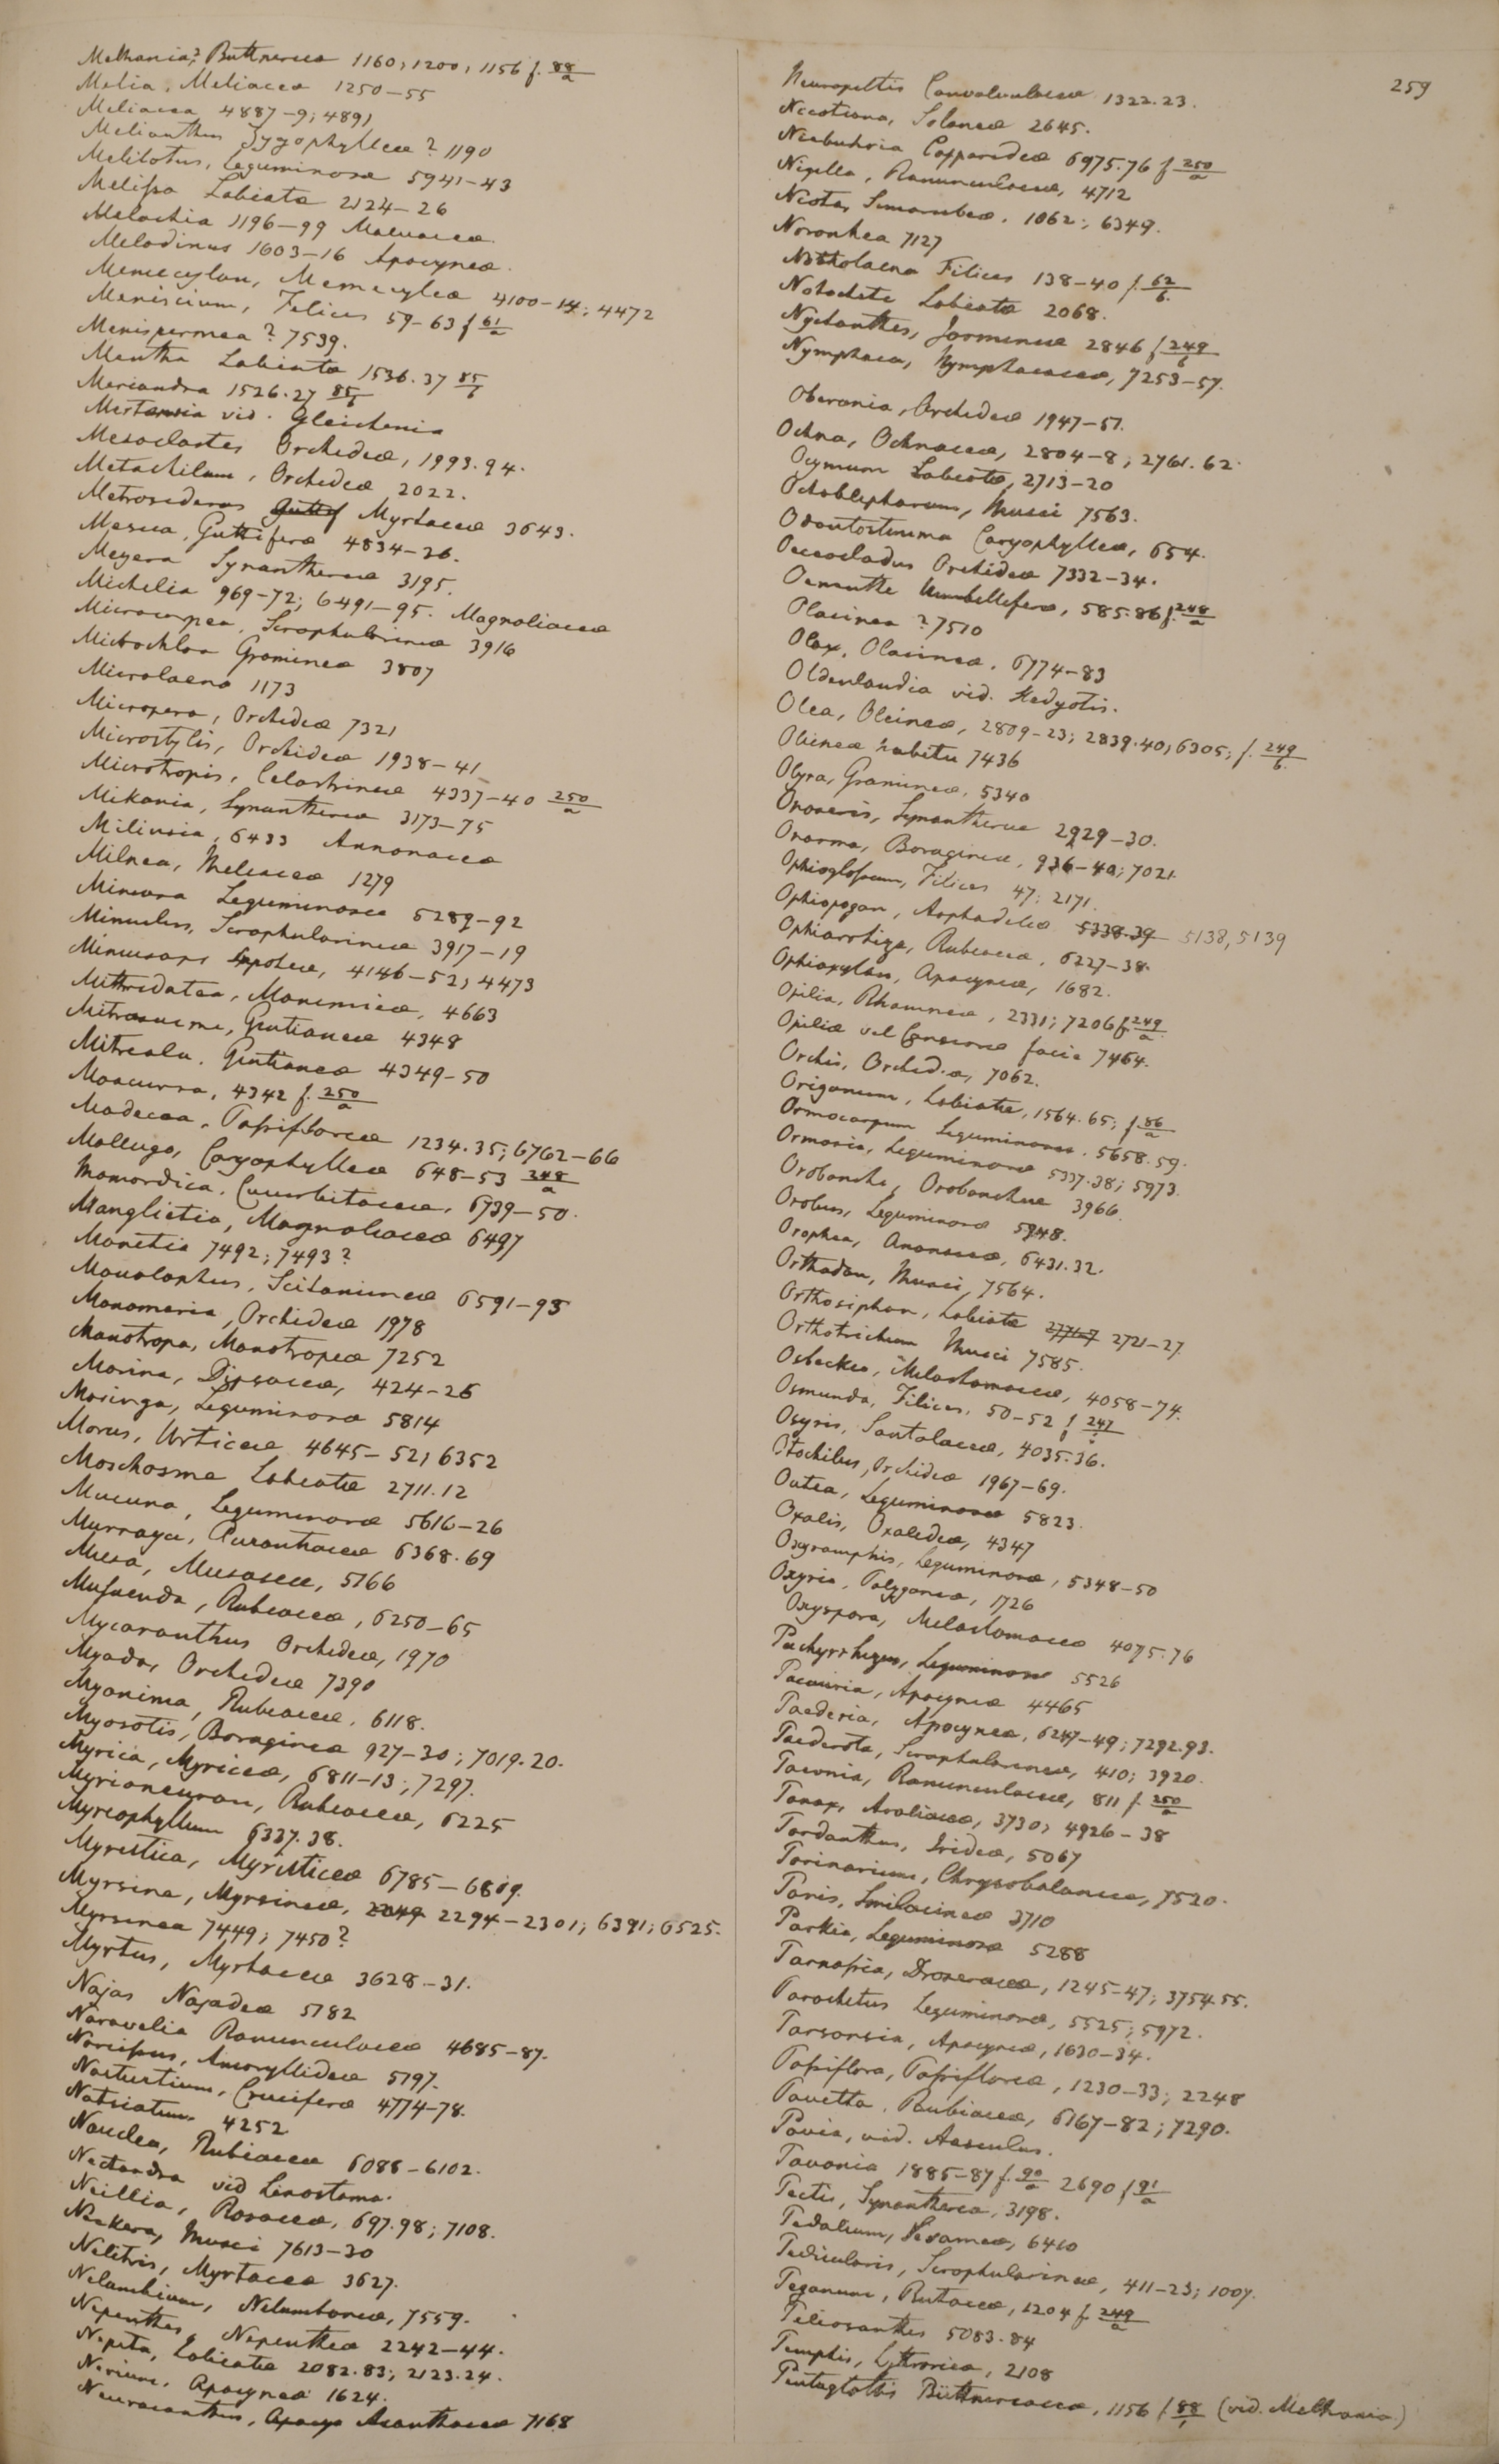 Melhania? Buttneriacea 1160; 1200; 1156 f. 88/a
Melia, Meliacea 1250-55
Meliacea 4887-9; 4891
Melianthus Zygophyllea? 1190
Melilotus, Leguminosæ 5941-43
Melissa Labiatæ 2124-26
Melochia 1196-99 Malvaceæ
Melodinus 1603-16 Apocyneæ.
Memecylon, Memecyleæ 4100-14; 4472
Meniscium, Felices 59-63 f 61/a
Menispermea? 7539.
Mentha Labiatæ 1536.37 85/b
Meriandra 1526.27 85/b
Mertensia vid. Gleichenia
Mesoclastes Orchideæ, 1993.94.
Metachilum, Orchideæ 2022.
Metrosideros Myrtaceæ 3643.
Mesua, Guttiferæ 4834-36.
Meyera Synanthereæ 3195.
Michelia 969-72; 6491-95. Magnoliaceæ
Microcarpea, Scrophularineæ 3916
Microchloa Gramineæ 3807
Microlaena 1173
Micropera, Orchideæ 7321
Microstylis, Orchideæ 1938-41
Microtropis, Celastrineæ 4337-40 250/a
Mikania, Synanthereæ 3173-75
Miliusia, 6433 Annonaceæ
Milnea, Meliaceæ 1279
Mimosa Leguminosæ 5289-92
Mimulus, Scrophularineæ 3917-19
Mimusops Sapoteæ, 4146-52; 4473
Mithridatea, Monimieæ, 4663
Mitrasacme, Gentianeæ 4348
Mitreola, Gentianeæ 4349-50
Moacurra, 4342 f. 250/a
Modecca, Passifloreæ 1234.35; 6762-66
Mollugo, Caryophylleæ 648-53 248/a
Momordica, Cucurbitaceæ, 6739-50.
Manglietia, Magnoliaceæ 6497
Manetia 7492; 7493?
Monolophus, Scitamineæ 6591-95
Monomeria, Orchideæ 1978
Monotropa, Monotropeæ 7252
Morina, Dipsaceæ, 424-26
Moringa, Leguminosæ 5814
Morus, Urticeæ 4645-52; 6352
Moschosma Labiatæ 2711.12
Mucuna, Leguminosæ 5616-26
Murraya, Aurantiaceæ 6368.69
Musa, Musaceæ, 5766
Mussaenda, Rubiaceæ, 6250-65
Mycaranthus Orchideæ, 1970
Myoda, Orchideæ 7390
Myonima, Rubiaceæ, 6118.
Myosotis, Boragineæ 927-30; 7019.20.
Myrica, Myriceæ, 6811-13; 7297.
Myrioneuron, Rubiaceæ, 6225
Myriophyllum 6337.38.
Myristica, Myristiceæ 6785-6809.
Myrsine, Myrsineæ, 2294-2301; 6391; 6525.
Myrsinea 7449; 7450?
Myrtus, Myrtaceæ 3628-31.
Najas Najadeæ 5182
Naravelia Ranunculaceæ 4685-87.
Narcissus, Amaryllideæ 5797.
Nasturtium, Cruciferæ 4774-78.
Natsiatum 4252
Nauclea, Rubiaceæ 6088-6102.
Nectandra vid Linostoma.
Neillia, Rosaceæ, 697.98; 7108.
Neckera, Musci 7613-30
Nelitris, Myrtaceæ 3627.
Nelumbium, Nelumboneæ, 7559.
Nepenthes, Nepentheæ 2242-44.
Nepeta, Labiatæ 2082.83; 2123.24.
Nerium, Apocyneæ 1624.
Neuracanthus, Apocyn Acanthaceæ 7168
259
Neuropeltis Convolvulaceæ 1322.23.
Nicotiana, Solaneæ 2645.
Niebuhria Capparideæ 6975.76 f 250/a
Nigella, Ranunculaceæ, 4712
Niota, Simarubeæ, 1062; 6349.
Noronhea 7127
Notholaena Filices 138-40 f. 62/b.
Notochete Labiatæ 2068.
Nyctanthes, Jasmineæ 2846 f 249/b
Nymphaea, Nymphaeaceæ, 7253-57.
Oberonia, Orchideæ 1947-51.
Ochna, Ochnaceæ, 2804-8; 2761.62.
Ocymum Labiatæ, 2713-20
Octoblepharum, Musci 7563.
Odontostemma Caryophylleæ, 654.
Oeceocladus Orchideæ 7332-34.
Oenanthe Umbelliferæ, 585.86 f. 248/a
Olacinea? 7510
Olax, Olacineæ, 6774-83
Oldenlandia vid. Hedyotis.
Olea, Oleineæ, 2809-23; 2839.40; 6305; f. 249/b.
Oleineæ habitu 7436
Olyra, Gramineæ, 5340
Onoseris, Synanthereæ 2929-30.
Onosma, Boragineæ, 936-40; 7021
Ophioglossum, Filices 47; 2171.
Ophiopogon, Asphodeleæ 5338.39 5138, 5139
Ophiorrhiza, Rubiaceæ, 6227-38.
Ophioxylon, Apocyneæ, 1682.
Opilia, Rhamneæ, 2331; 7206 f. 249/a
Opiliæ vel Cansieræ facie 7464.
Orchis, Orchideæ, 7062.
Origanum, Labiatæ, 1564.65; f 86/a
Ormocarpum Leguminosæ. 5658.59.
Ormosia, Leguminosæ 5337.38; 5973.
Orobanche, Orobancheæ 3966.
Orobus, Leguminosæ 5948.
Orophea, Anonaceæ, 6431.32.
Orthodon, Musci, 7564.
Orthosiphon, Labiatæ 2721-27.
Orthotrichum Musci 7585.
Osbeckia, Melastomaceæ, 4058-74.
Osmunda, Filices, 50-52 f 247
Osyris, Santalaceæ, 4035.36.
Otochilus, Orchideæ 1967-69.
Outea, Leguminosæ 5823.
Oxalis, Oxalideæ, 4347
Oxyramphis, Leguminosæ, 5348-50
Oxyria, Polygoneæ, 1726
Oxyspora, Melastomaceæ 4075.76
Pachyrrhizus, Leguminosæ 5526
Pacouria, Apocyneæ 4465
Paederia, Apocyneæ, 6247-49; 7292.93.
Paederota, Scrophularineæ, 410; 3920.
Paeonia, Ranunculaceæ, 811 f. 250/a
Panax, Araliaceæ, 3730; 4926-38
Pardanthus, Irideæ, 5067
Parinarium, Chrysobalaneæ, 7520.
Paris, Smilacineæ 3710
Parkia, Leguminosæ 5288
Parnassia, Droseraceæ, 1245-47; 3754.55.
Parochetus Leguminosæ, 5525; 5972.
Parsonsia, Apocyneæ, 1630-34.
Passiflora, Passifloreæ, 1230-33; 2248
Pavetta, Rubiaceæ, 6167-82; 7290.
Pavia, vid. Aesculus.
Pavonia 1885-87 f. 90/a 2690 f 91/a
Pectis, Synanthereæ, 3198.
Pedalium, Sesameæ, 6410
Pedicularis, Scrophularineæ, 411-23; 1007.
Peganum, Rutaceæ, 1204 f. 249/a
Peliosanthes 5083.84
Pemphis, Lythrarieæ, 2108
Pentaglottis Büttneriaceæ, 1156 f. 88/ (vid. Melhania.)